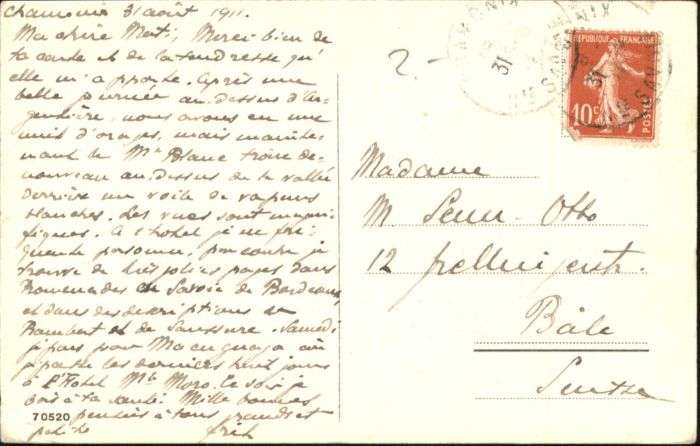 Chamonix 31 août 1911.
Ma chère Mati, Merci bien de
ta carte et de la tendresse qu'
elle m'apporte. Après une
belle journée au-dessus d'Ar-
gentière, nous avons eu une
nuit d'orages, mais mainte-
nant le Mt Blanc trône de-
nouveau au-dessus de la vallée
derrière un voile de vapeurs
blanches. Les vues sont magni-
fiques. A l'hotel je ne fré-
quente personne, par contre je
trouve de très jolies pages dans
Promenades en Savoie de Bordeaux
et dans des descriptions de
Rambert et de Saussure. Samedi
je pars pour Macugnaga où
je passe les derniers huit jours
à l'Hotel Mte Moro. Ce soir je
bois à ta santé. Mille bonnes
pensées à tous, grands et
petits
70520
CHAMONIX
31
RÉPUBLIQUE FRANÇAISE
10c
POSTES
Madame
M. Senn-Otto
12
Bâle
Suisse